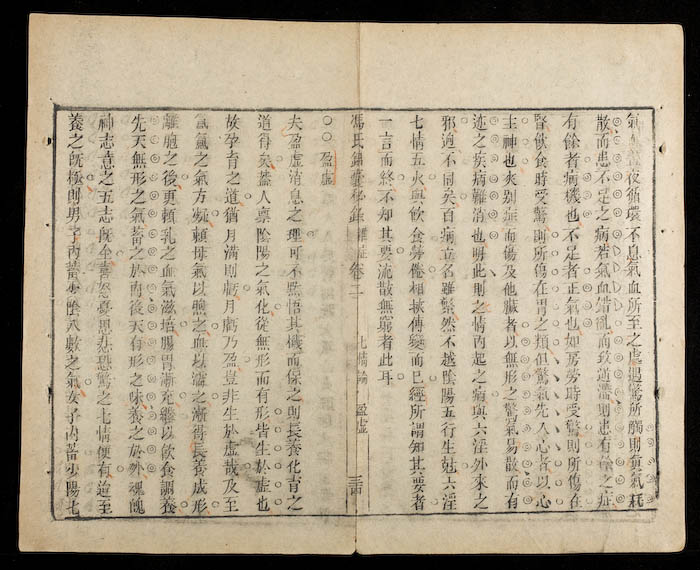 氣血晝夜循環不息氣血所至之處遇驚所觸則重氣耗
散而患不足之病若氣血錯亂而致道濁則患有餘之症
有餘者病機也不足者正氣也如房勞時受驚則所傷在
腎飲食時受驚則所傷在胃之類但驚氣先人心者以心
主神也夾別症而傷及他臟者以無形之驚氣易散而有
迹之疾病難消也明此則七情內起之病與六淫外來之
邪迥不同矣百病立名雖繁然不越陰陽五行生尅六淫
七情五火與飲食勞倦相挾傳變而已經所謂知其要者
一言而終不知其要流散無窮者此耳
馮氏錦囊秘錄 雜症 卷二 七情論 盈虛
○○盈虛
夫盈虛消息之理可不默悟其機而保之則長養化育之
道得矣蓋人稟陰陽之氣化從無形而有形皆生於虛也
故孕育之道猶月滿則虧月虧乃盈豈非生於虛哉及至
氤氳之氣方凝賴母氣以煦之血以濡之漸得長養成形
離胞之後更賴乳之血氣滋培腸胃漸充繼以飲食調養
先天無形之氣蓄之於內後天有形之味養之於外魂魄
神志意之五志既全喜怒憂思悲恐驚之七情便有迨至
養之既極則男子內蓄少陰八數之氣女子內蓄少陽七